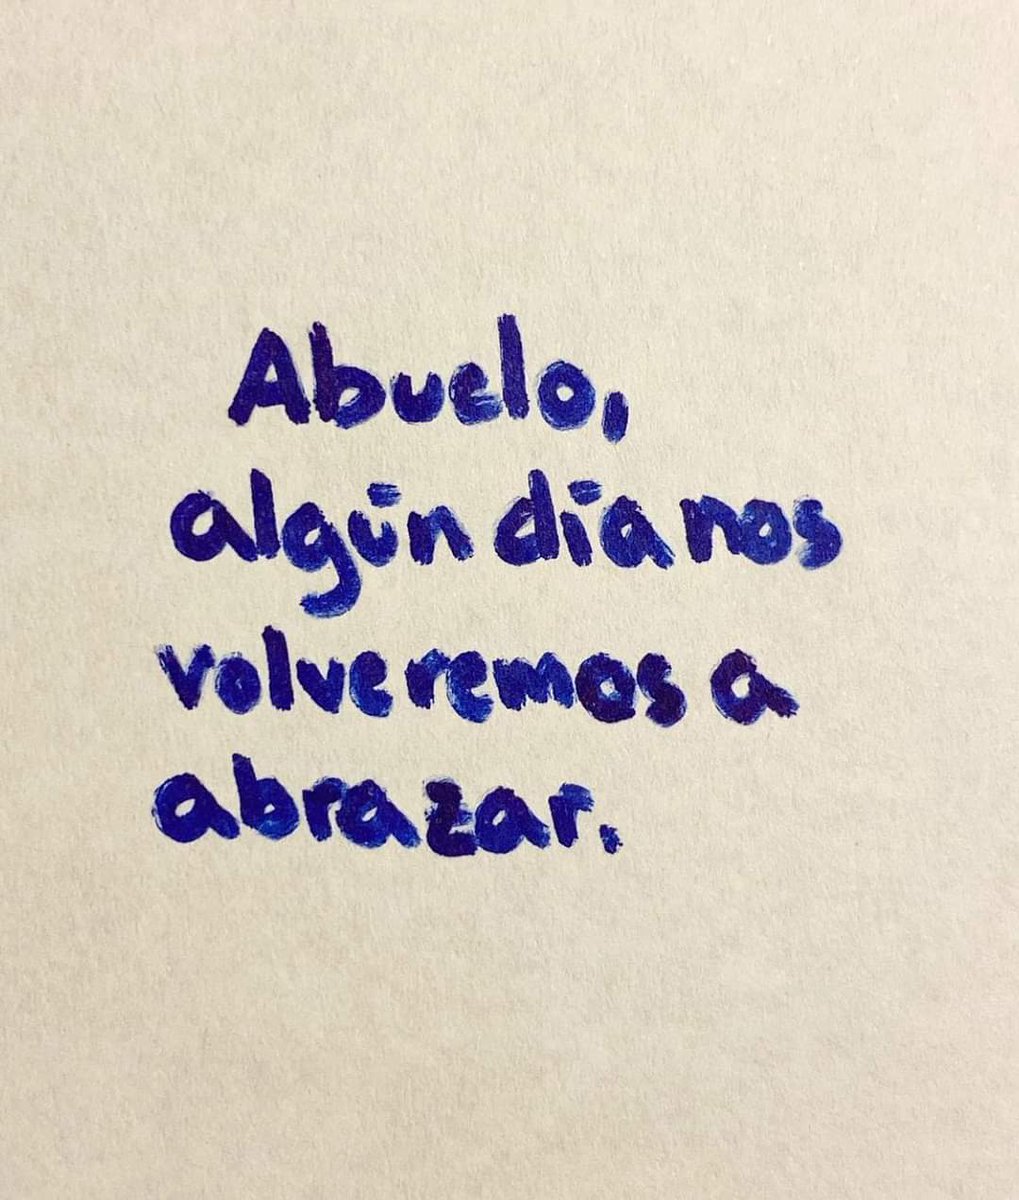 Abuelo,
algún día nos
volveremos a
abrazar.